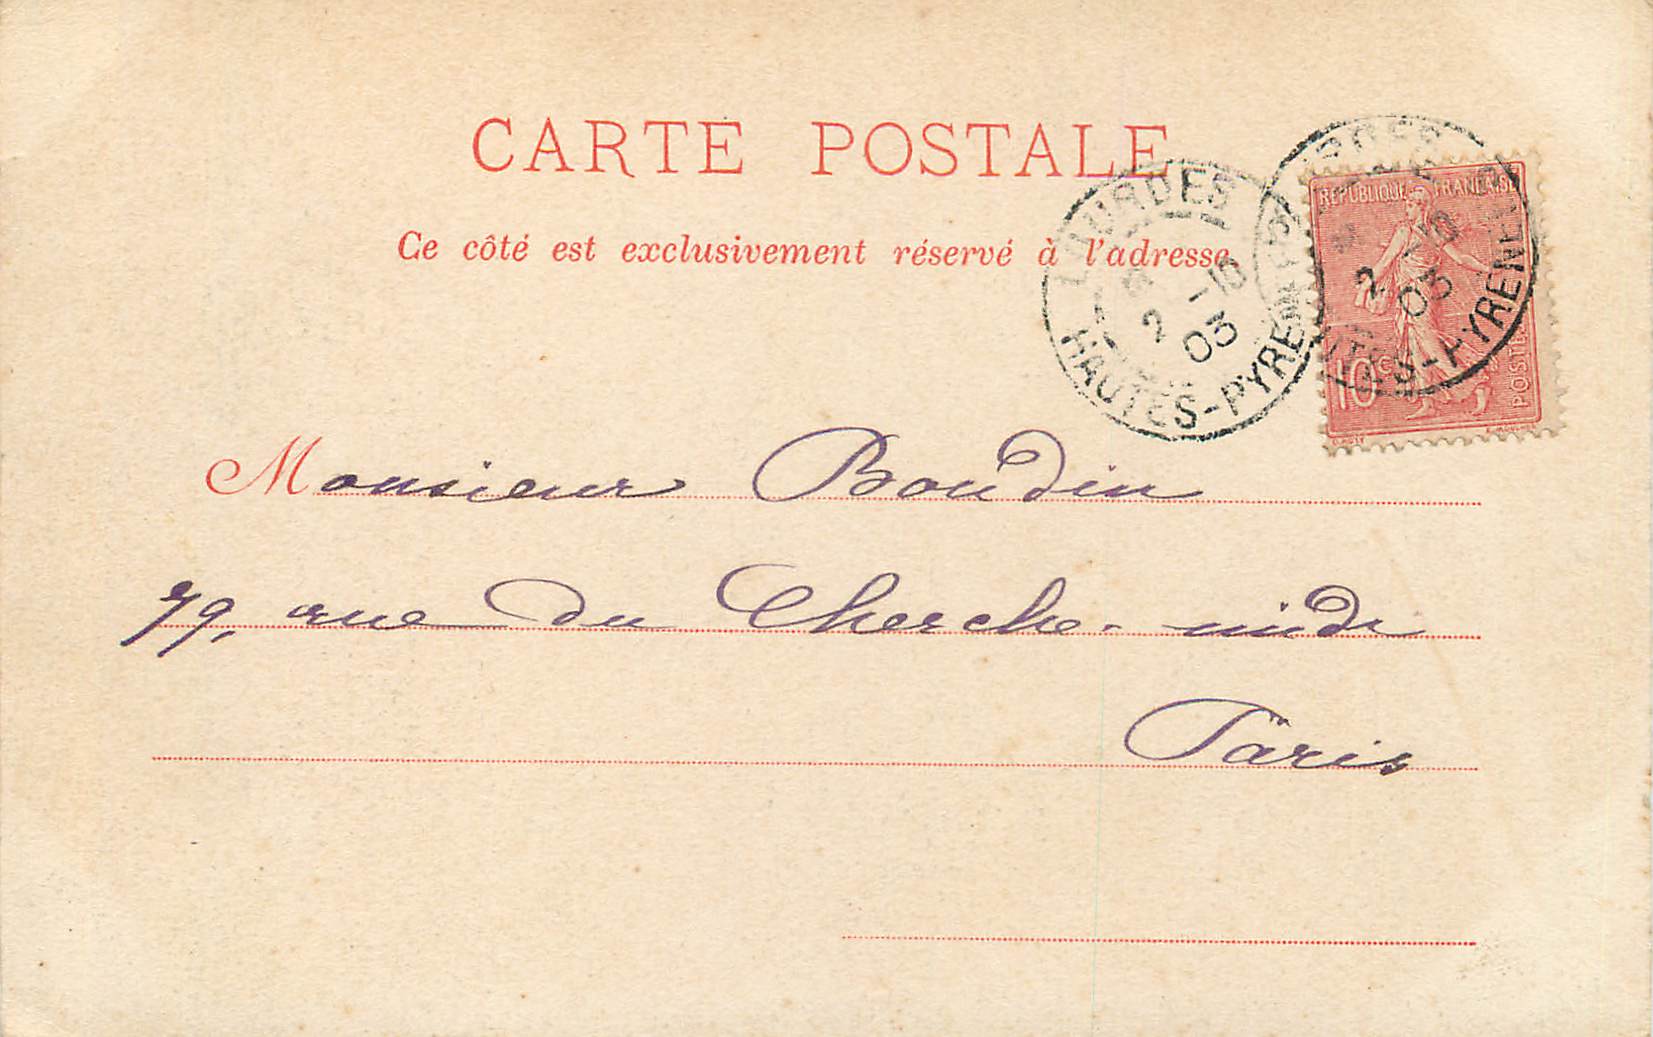 CARTE POSTALE
Ce côté est exclusivement réservé à l'adresse
LOURDES
2 -10
03
HAUTES-PYRENEES
REPUBLIQUE FRANÇAISE
2 -10
03
10c
POSTES
Monsieur Boudin
79, rue du Cherche-midi
Paris